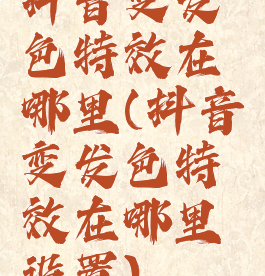 抖音变发
色特效在
哪里(抖音
变发色特
效在哪里
设置)